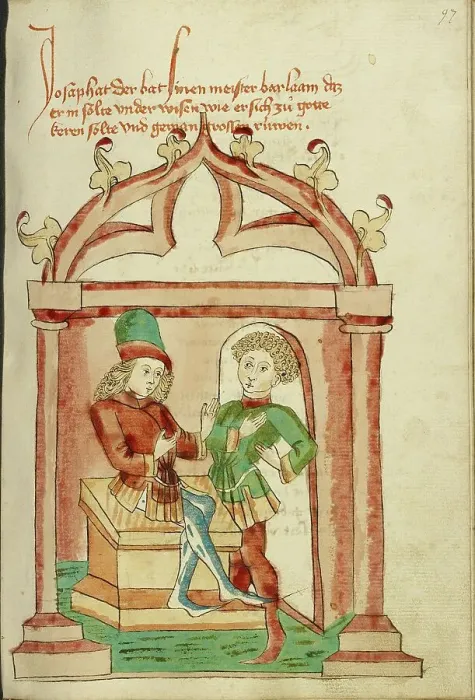 97
Josaphat der bat sinen meister barlaam daz
er in sölte vnder wisen wie er sich zü gotte
keren sölte vnd gewan grossen rúwen.